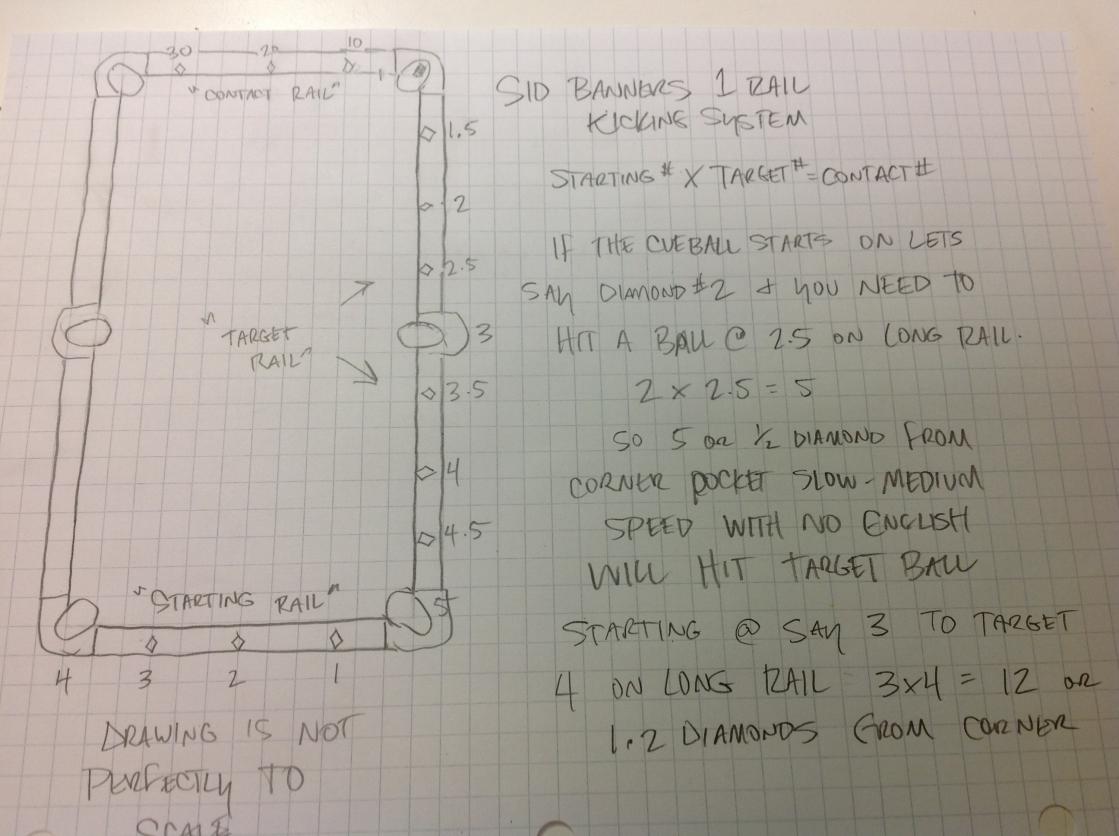 30 20 10
"CONTACT RAIL"
1
1.5
2
2.5
3
"TARGET
RAIL"
3.5
4
4.5
5
"STARTING RAIL"
4 3 2 1
DRAWING IS NOT
PERFECTLY TO
SCALE
SID BANNERS 1 RAIL
KICKING SYSTEM
STARTING # X TARGET # = CONTACT #
IF THE CUEBALL STARTS ON LETS
SAY DIAMOND #2 & YOU NEED TO
HIT A BALL @ 2.5 ON LONG RAIL.
2 x 2.5 = 5
SO 5 OR ½ DIAMOND FROM
CORNER POCKET SLOW-MEDIUM
SPEED WITH NO ENGLISH
WILL HIT TARGET BALL
STARTING @ SAY 3 TO TARGET
4 ON LONG RAIL 3x4 = 12 OR
1.2 DIAMONDS FROM CORNER